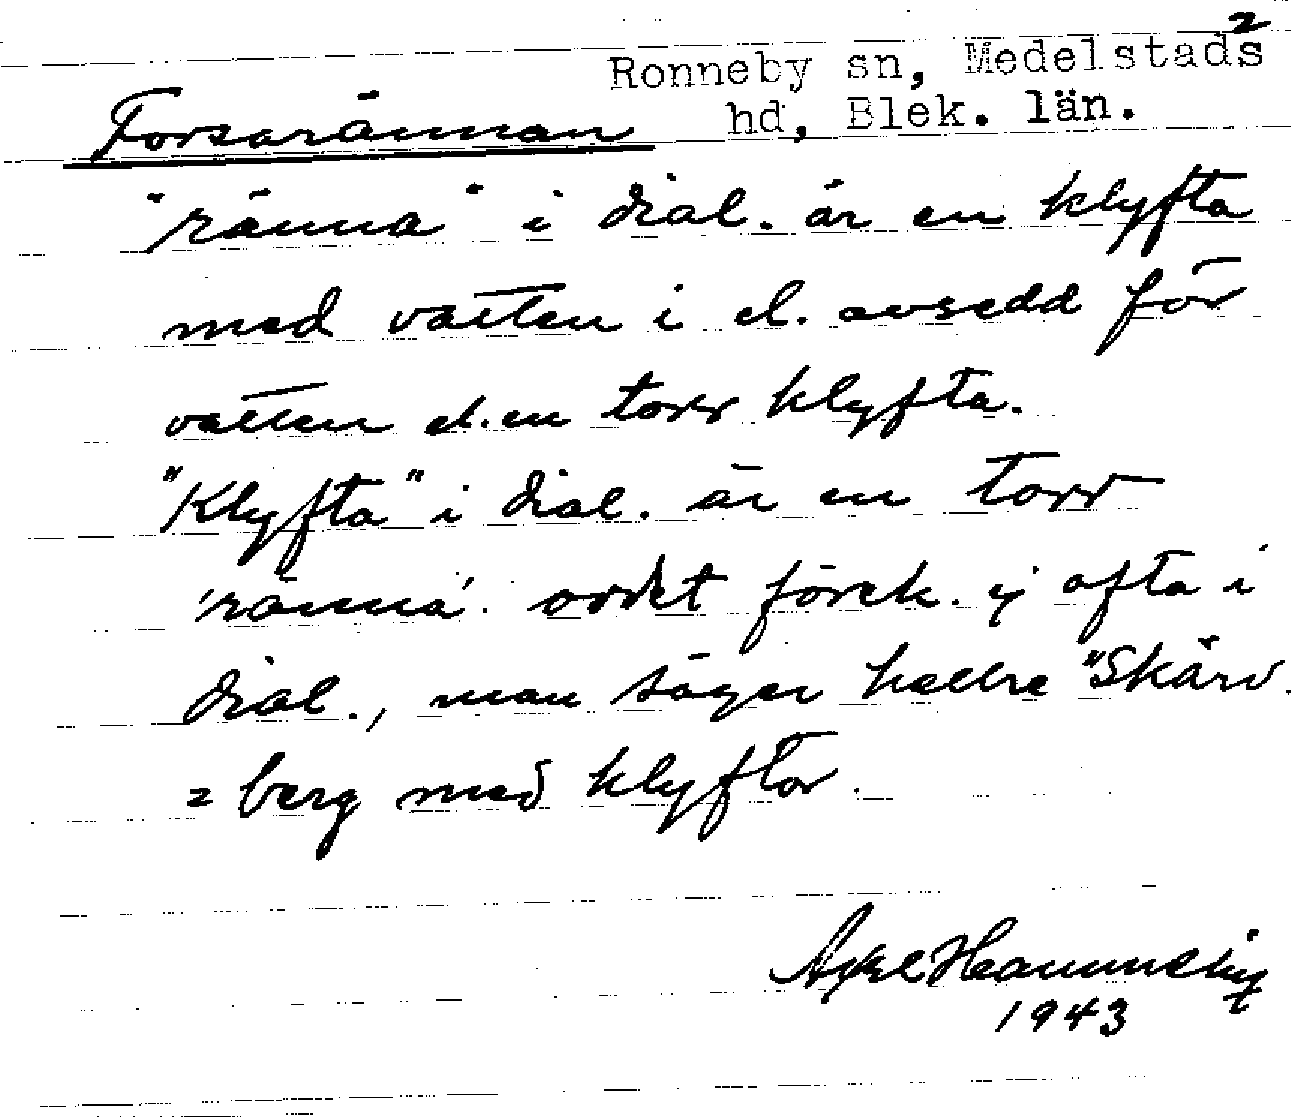 2
Ronneby sn, Medelstads
Forsarännan hd, Blek. län.
"ränna" i dial. är en klyfta
med vatten i el. avsedd för
vatten el. en torr klyfta.
"Klyfta" i dial. är en torr
'ränna'. ordet förek. ej ofta i
dial., man säger hellre "Skärv
= berg med klyftor.
Axel
1943